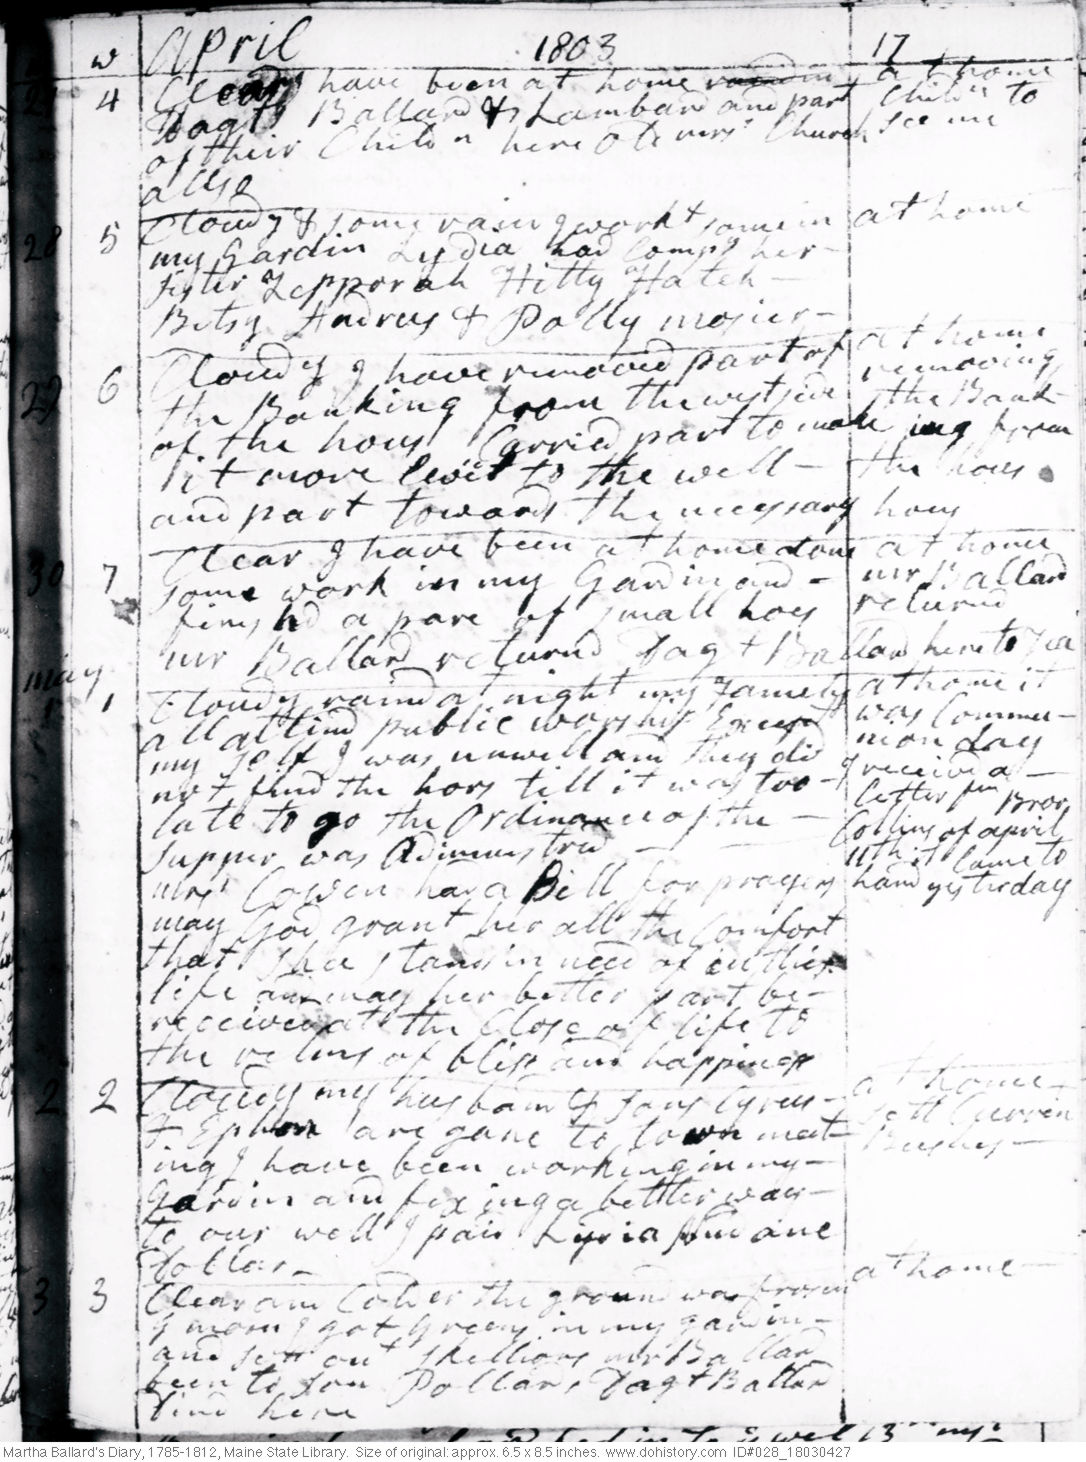 w April 1803 17
4 Clear I have been at home at home
Dagt Ballard & Lambard and part Childn to
of their Childn here Old mrs Church see me
allso
28 5 Cloudy & some rain I workt some in at home
my Gardin Lydia had Comp'y her
sister Zepporah Hitty Hatch
Betsy Andrus & Polly mosier
29 6 Cloudy I have removed part of at home
removing
the Banking from the west side the Bank-
of the hous Carried part to make ing from
it more level to the well the hous
and part towards the necessary hous
30 7 Clear I have been at home done at home
some work in my Gardin and mr Ballard
finishd a pare of small hoes returnd
mr Ballard returnd Dagt Ballard here to Tea
may
1 1 Cloudy raind at night my famely at home it
all attind public worship Except was Commu-
my self I was unwell and they did nion Day
not find the hors till it was too I received a
late to go the Ordinance of the letter fm Bror
supper was Administred Collins of april
11th it Came to
mrs Cowen had a Bill for prayers hand yesterday
may God grant her all the Comfort
that shee stands in need of in this
life and may her better part be
received at the Close of life to
the relms of bliss and happiness
2 2 Cloudy my husband & sons Cyrus at home
& Ephm are gone to town meet- sett Currin
ing I have been working in my Bushes
Gardin and fixing a better way
to our well I paid Lydia one
Dollar
3 3 Clear and Cold the ground was frosen at home
I got Greens in my gardin
and sett out skellions mr Ballard
been to Son Pollards Dagt Ballard
Dind here
Martha Ballard's Diary, 1785-1812, Maine State Library. Size of original: approx. 6.5 x 8.5 inches. www.dohistory.com ID#028_18030427